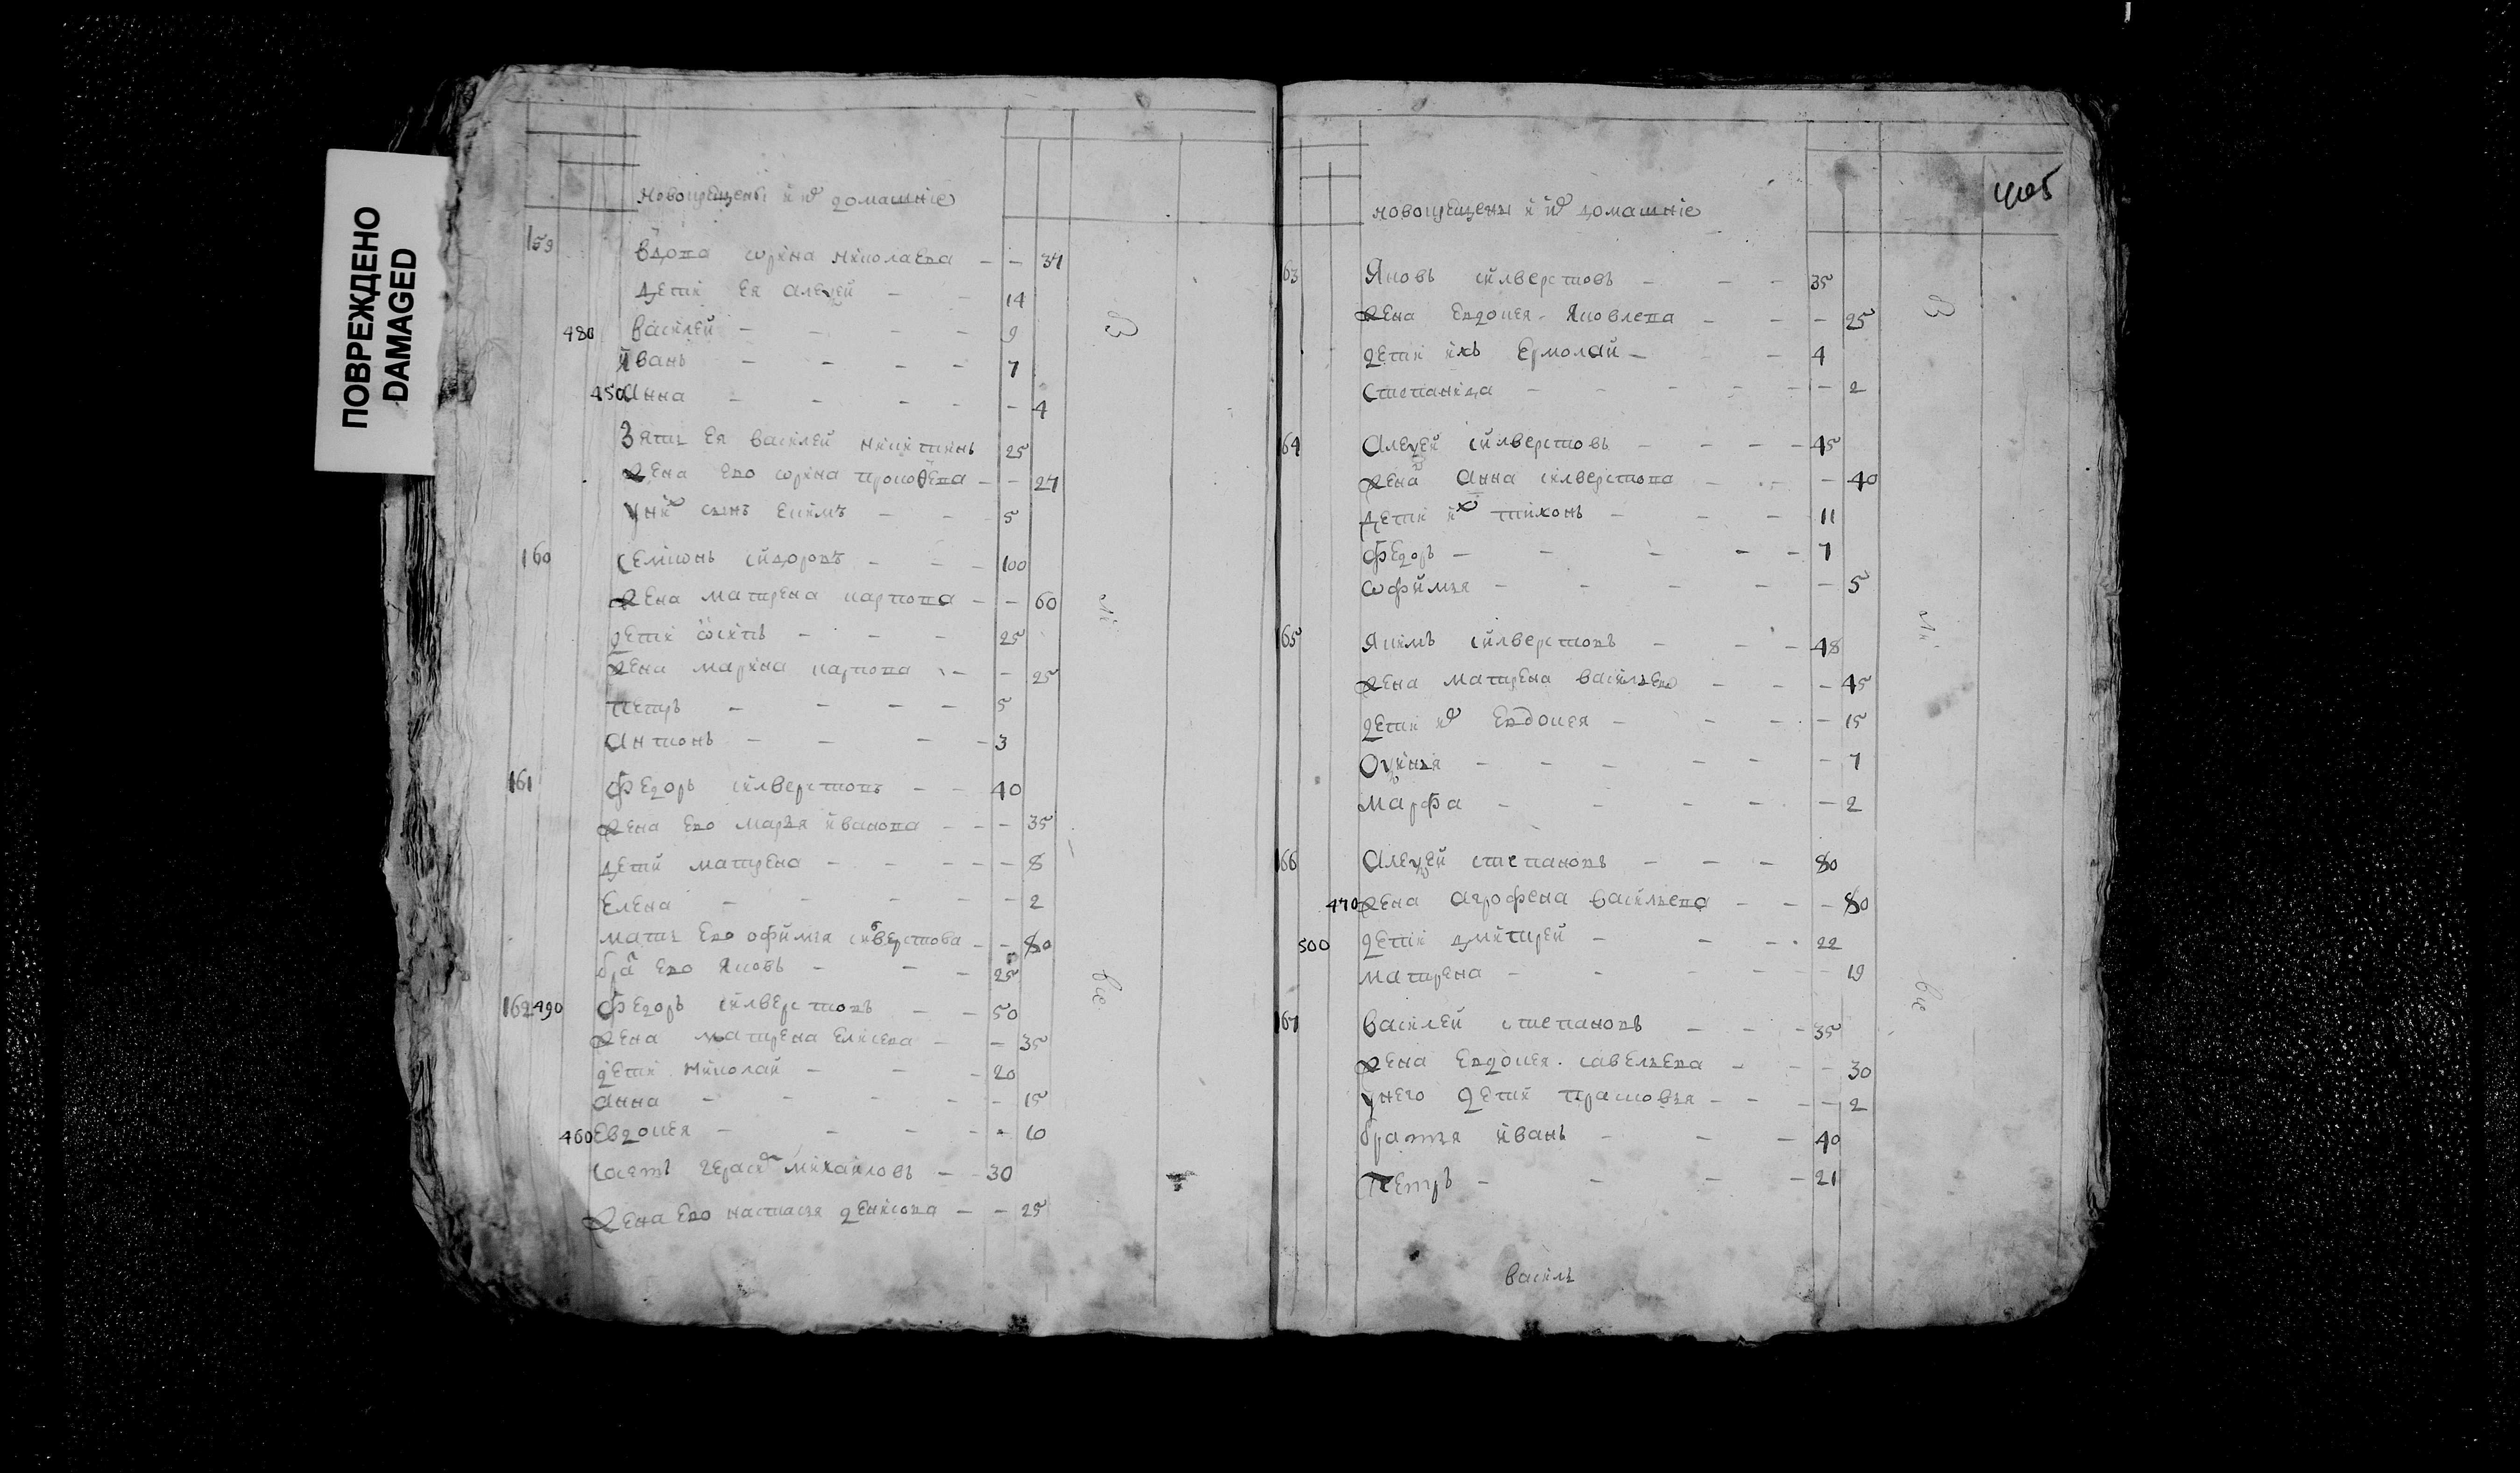 ПОВРЕЖДЕНО
DAMAGED
новокрещены и их домашние
159 вдова орина николаева 37
дети ея алексей 14
480 василей 9
иван 7
450 анна 4
зять ея василей никитинъ 25
жена ево орина прокофева 27
у них сынъ екимъ 5
160 семионъ сидоровъ 100
жена матрена карпова 60
дети осипъ 25
жена марина карпова 25
петръ 5
антонъ 3
161 федоръ силверстовъ 40
жена ево марья иванова 35
дети матрена 8
елена 2
мать ево офимья силверстова 80
брат ево яковъ 25
162 490 федоръ силверстовъ 50
жена матрена елисева 35
дети николай 20
анна 15
460 евдокея 10
герасим михаиловъ 30
жена ево настасья денисова 25
405
новокрещены и их домашние
63 яковъ силверстовъ 35
жена евдокея яковлева 25
дети ихъ ермолай 4
степанида 2
64 алексей силверстовъ 45
жена анна силверстова 40
дети их тихонъ 11
федоръ 7
офимья 5
65 якимъ силверстовъ 48
жена матрена васильева 45
дети их евдокея 15
7
марфа 2
66 алексей степановъ 80
470 жена агрофена васильева 80
500 дети дмитрей 22
матрена 19
67 василей степановъ 35
жена евдокея савельева 30
у него дети прасковья 2
братья иванъ 40
петръ 21
василь